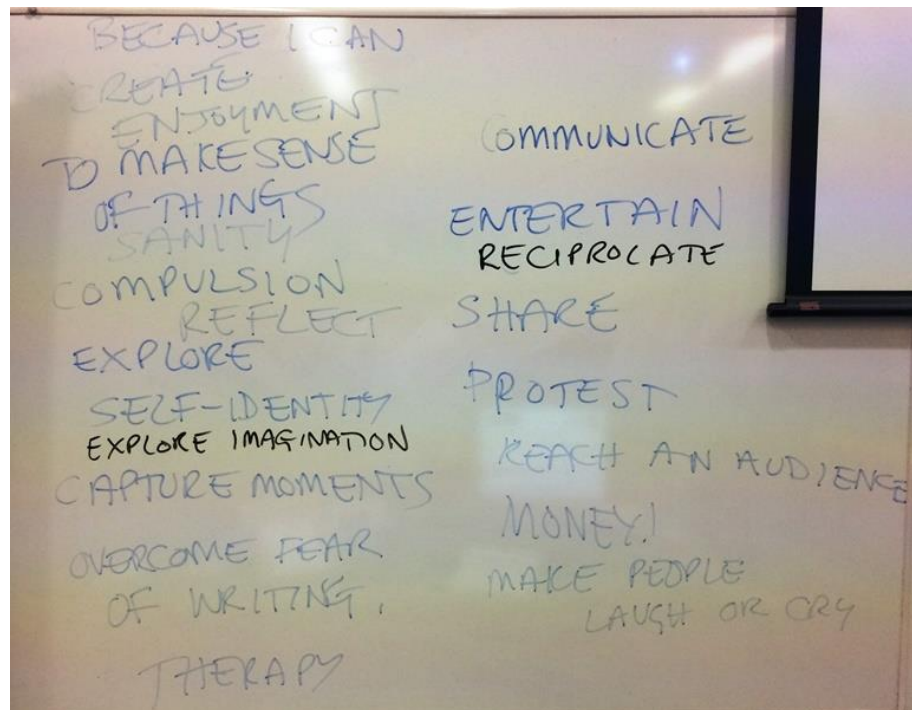 BECAUSE I CAN
CREATE
ENJOYMENT
TO MAKE SENSE
OF THINGS
SANITY
COMPULSION
REFLECT
EXPLORE
SELF-IDENTITY
EXPLORE IMAGINATION
CAPTURE MOMENTS
OVERCOME FEAR
OF WRITING.
THERAPY
COMMUNICATE
ENTERTAIN
RECIPROCATE
SHARE
PROTEST
REACH AN AUDIENCE
MONEY!
MAKE PEOPLE
LAUGH OR CRY